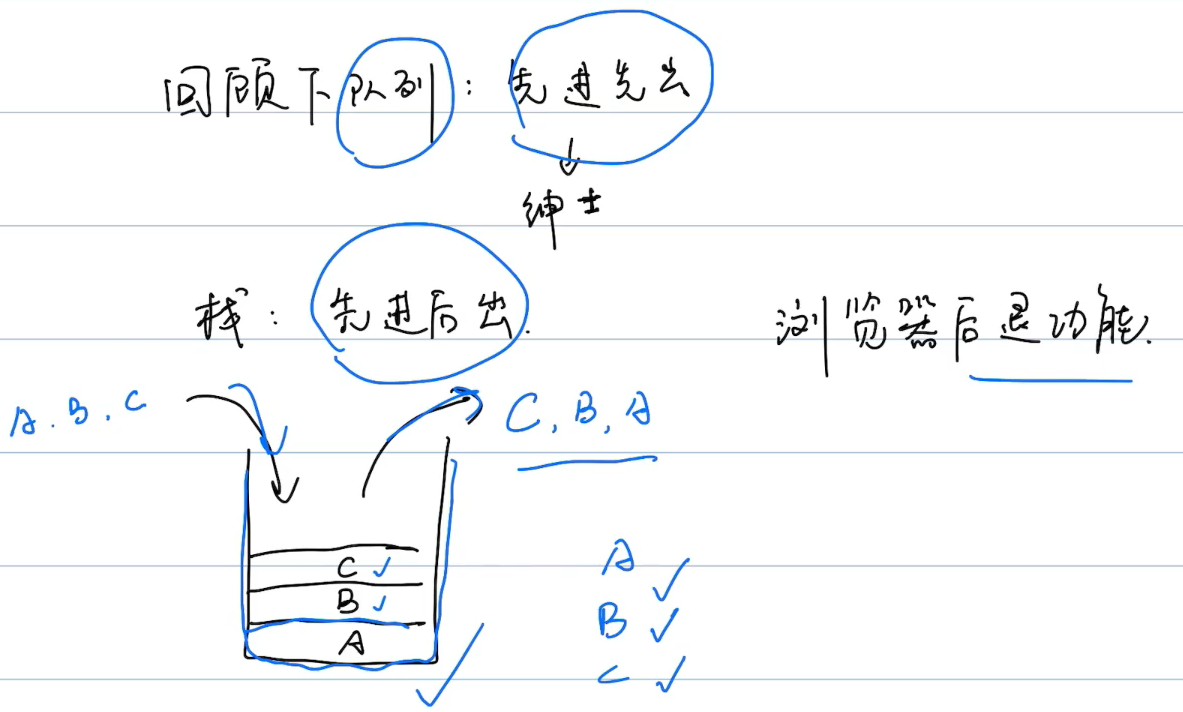 回顾下队列：先进先出
绅士
栈：先进后出.
浏览器后退功能.
A.B.C
C,B,A
C
B
A
A
B
C